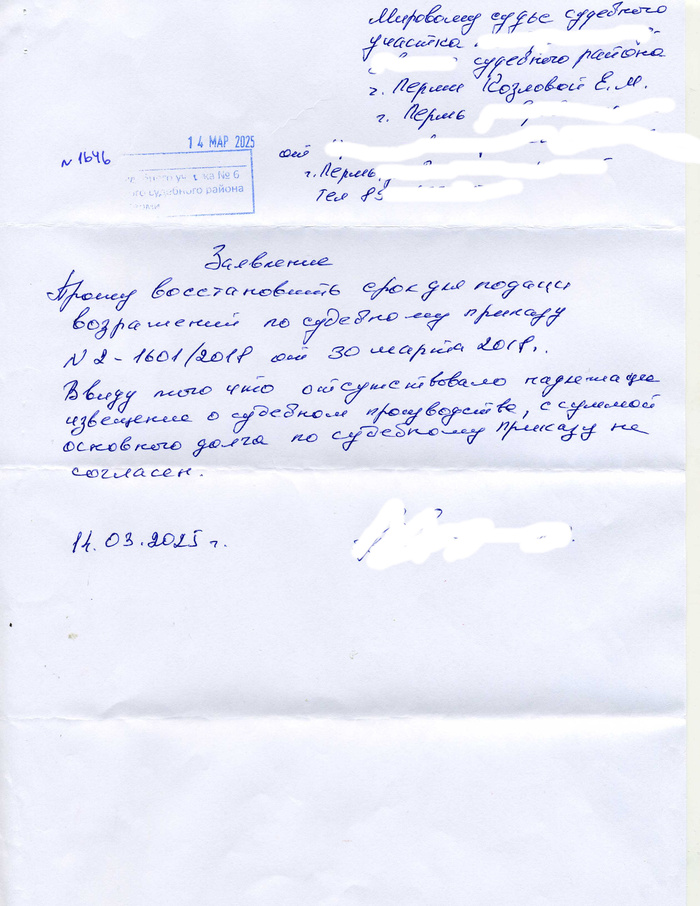 Мировому судье судебного
участка
судебного района
г. Перми Козловой Е.М.
г. Пермь
14 МАР 2025
N 1646
от
ка № 6
судебного района
г. Пермь,
тел 85
Заявление
Прошу восстановить срок для подачи
возражений по судебному приказу
N 2-1601/2018 от 30 марта 2018г.
Ввиду того что отсутствовало надлежаще
извещение о судебном производстве, с суммой
основного долга по судебному приказу не
согласен.
14.03.2025 г.